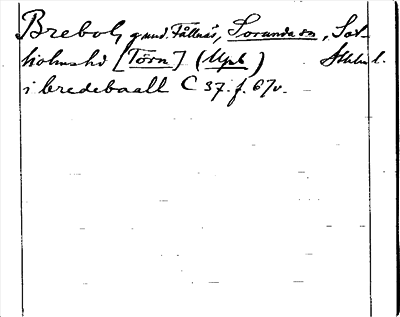 Brebol, y und. Fållnäs, Sorunda sn, Sot-
holms hd [Törn] (Upl) Sthlm l.
i bredebaall C 37. f. 67v.